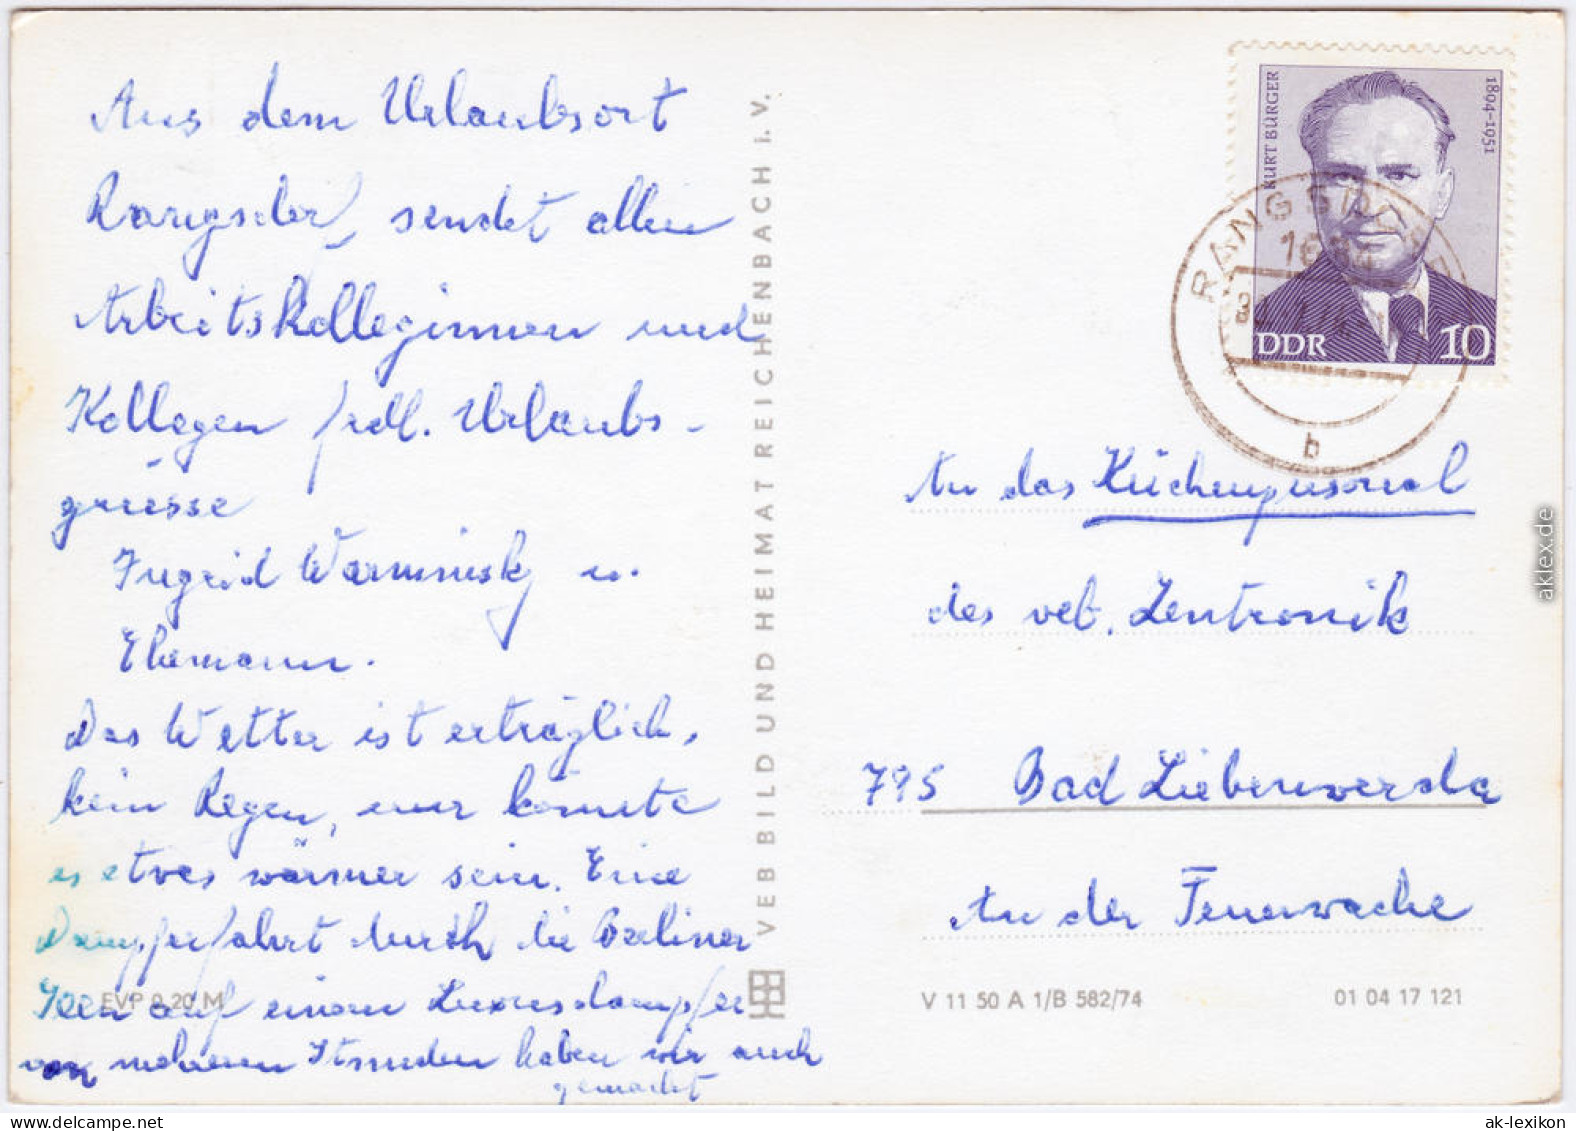 Aus dem Urlaubsort
Rangsdorf, sendet allen
Arbeitskolleginnen und
Kollegen frdl. Urlaubs-
grüsse
Ingrid Warminsky u.
Ehemann.
Das Wetter ist erträglich,
kein Regen, nur könnte
es etwas wärmer sein. Eine
Dampferfahrt durch die Berliner
Seen auf einem Luxusdampfer
von mehreren Stunden haben wir auch
gemacht
EVP 0,20 M
VEB BILD UND HEIMAT REICHENBACH I. V.
KURT BÜRGER
1894-1951
DDR
10
RANGSDORF
b
An das Küchenpersonal
des veb. Zentronik
795 Bad Liebenwerda
An der Feuerwache
V 11 50 A 1/B 582/74
01 04 17 121
aklex.de
ak-lexikon